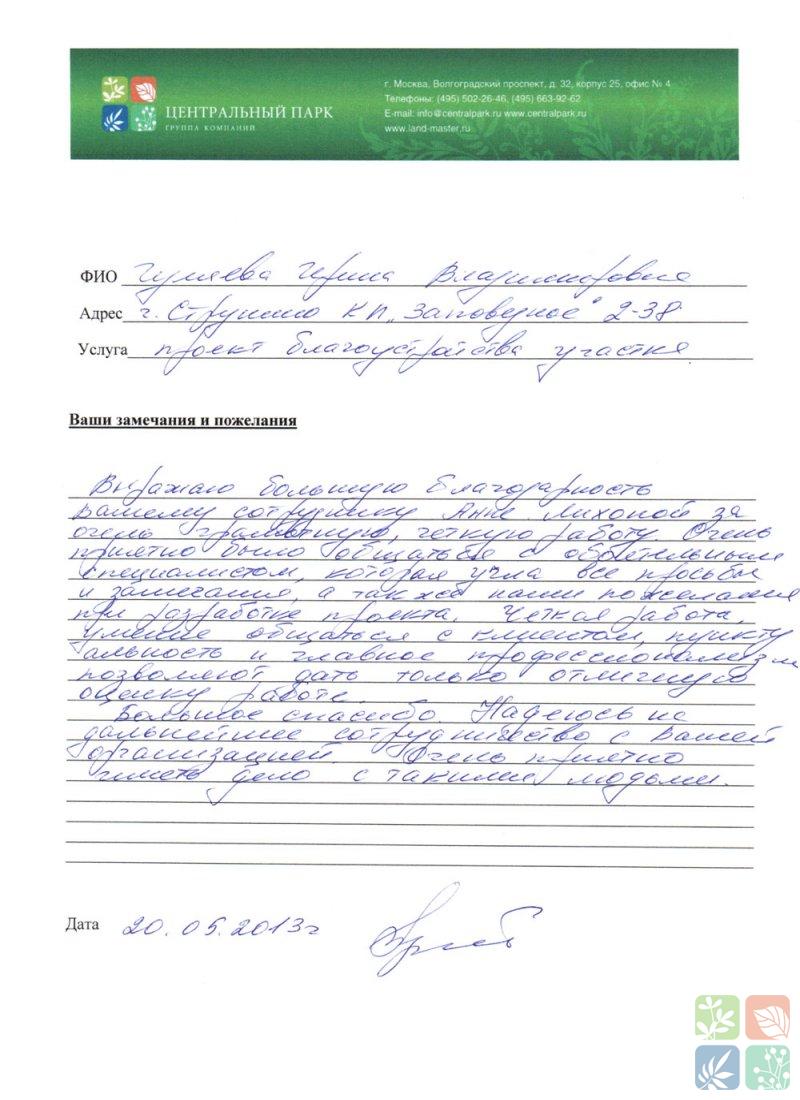 ЦЕНТРАЛЬНЫЙ ПАРК
ГРУППА КОМПАНИЙ
г. Москва, Волгоградский проспект, д. 32, корпус 25, офис № 4
Телефоны: (495) 502-26-46, (495) 663-92-62
E-mail: info@centralpark.ru www.centralpark.ru
www.land-master.ru
ФИО Гуляева Ирина Владимировна
Адрес г. Струнино КП „Заповедное" 2-38
Услуга проект благоустройства участка
Ваши замечания и пожелания
Выражаю большую благодарность
вашему сотруднику Анне Лихопой за
очень грамотную, четкую работу. Очень
приятно было общаться с обаятельным
специалистом, которая учла все просьбы
и замечания, а также наши пожелания
при разработке проекта. Четкая работа,
умение общаться с клиентом, пункту
альность и главное профессионализм
позволяют дать только отличную
оценку работе.
Большое спасибо. Надеюсь на
дальнейшее сотрудничество с Вашей
организацией. Очень приятно
иметь дело с такими людьми.
Дата 20.05.2013г